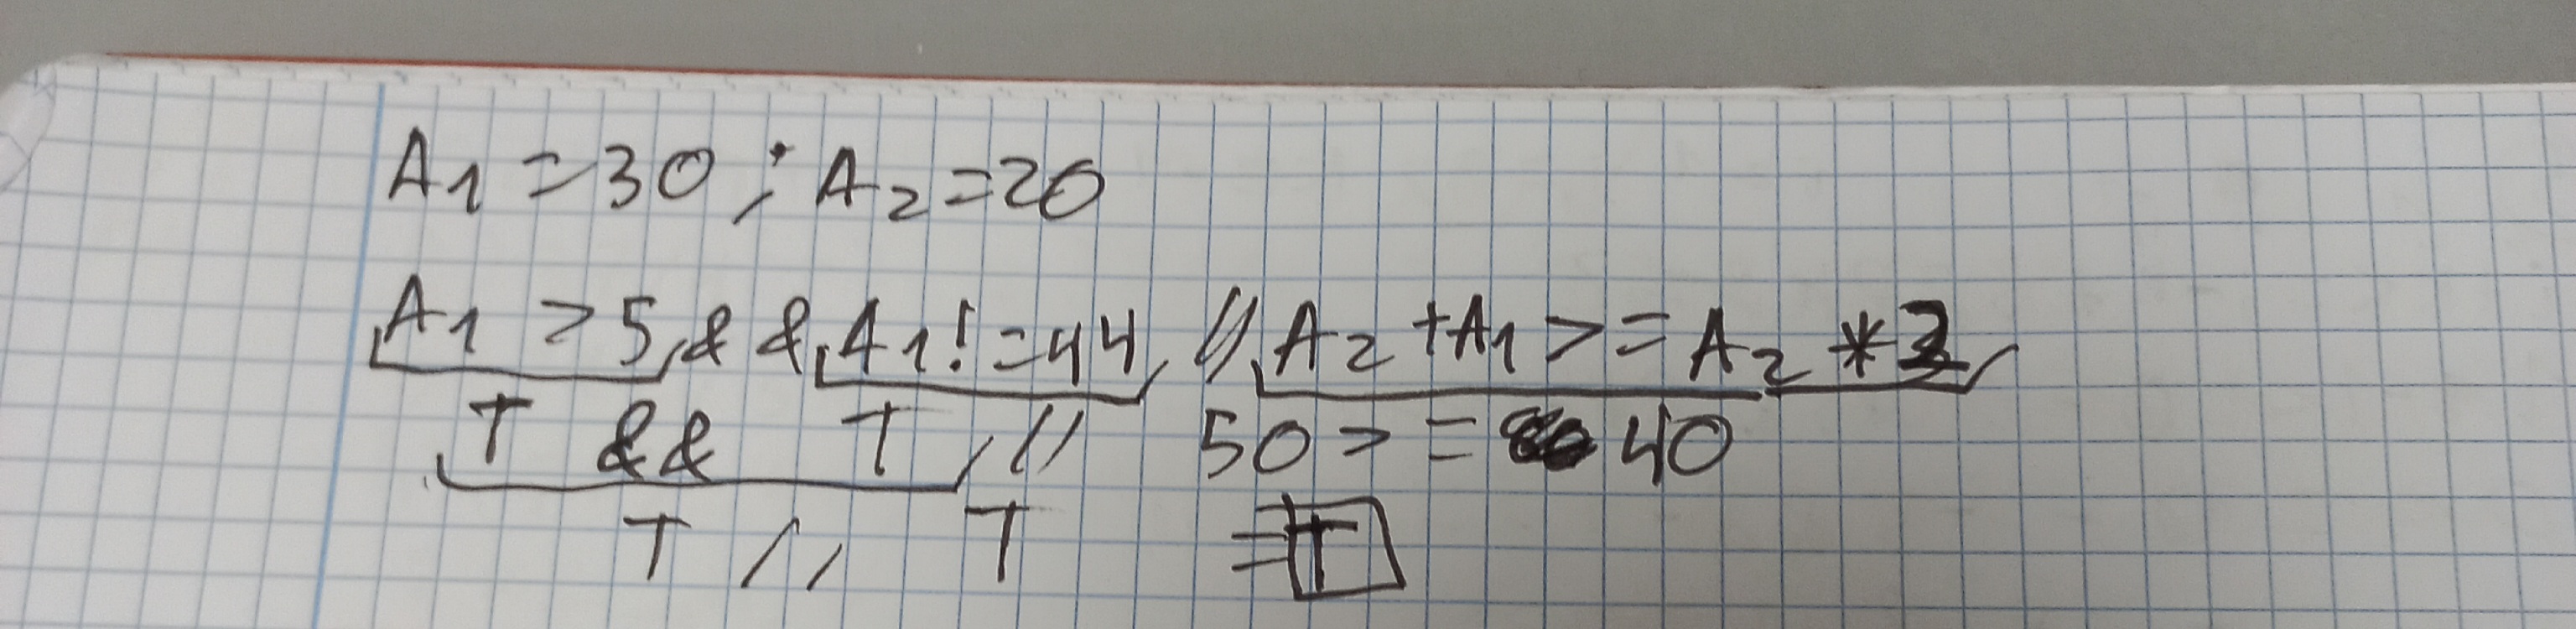 A1 = 30 ; A2 = 20
A1 > 5 && A1! = 44 // A2 + A1 > = A2 * 2
T && T // 50 > = 40
T // T = T